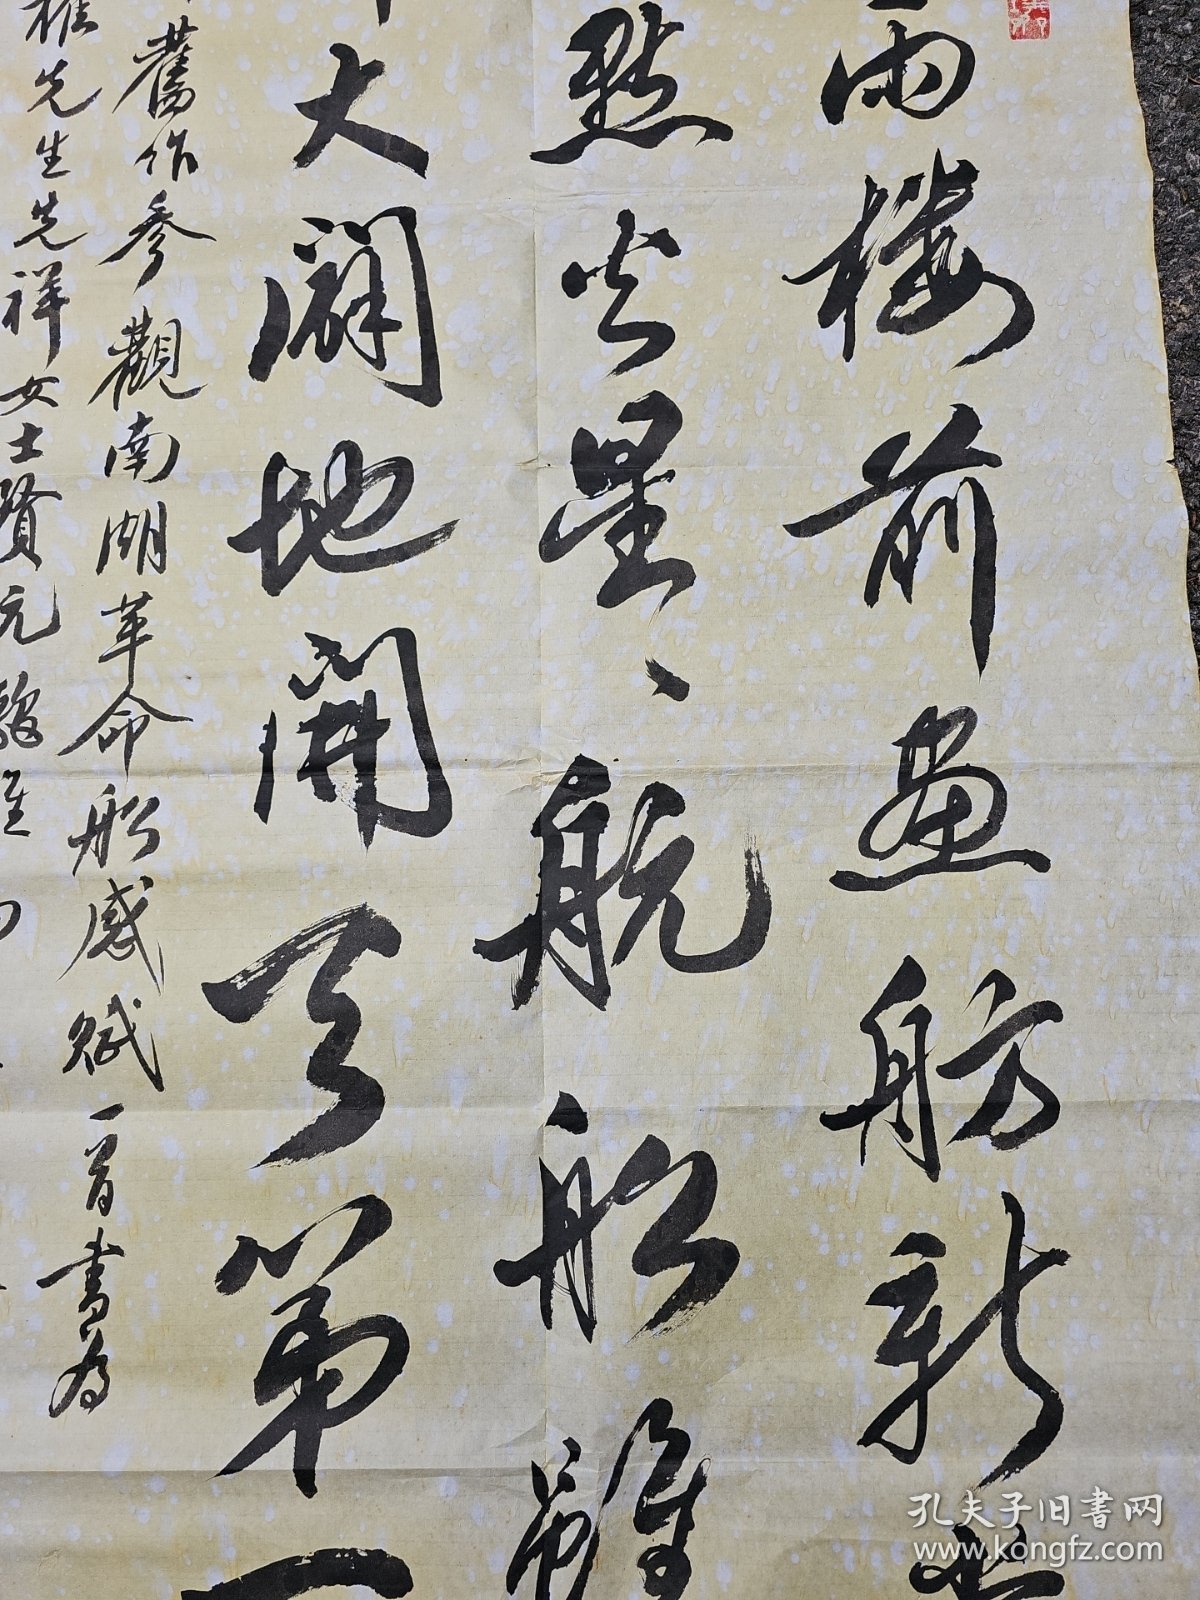 雨樓前畫舫新
點火星、航船雖
大闢地開天第一
舊作參觀南湖革命船感賦一首書為
先生先祥女士賢元
孔夫子旧書网
www.kongfz.com